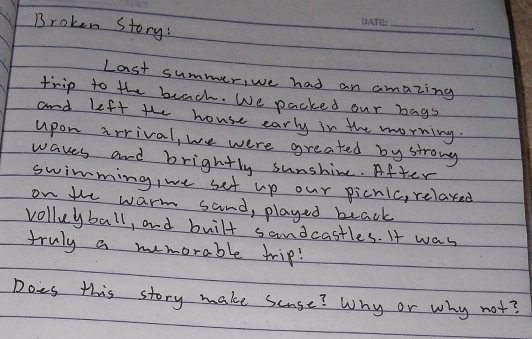 Broken Story:
DATE:
Last summer, we had an amazing
trip to the beach. We packed our bags
and left the house early in the morning.
upon arrival, we were greated by strong
waves and brightly sunshine. After
swimming, we set up our picnic, relaxed
on the warm sand, played beack
volleyball, and built sandcastles. It was
truly a memorable trip!
Does this story make sense? Why or why not?